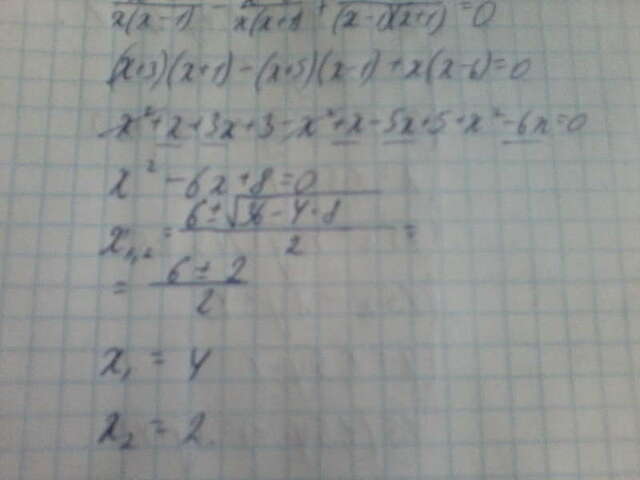 x(x-1) - x(x+1) + (x-1)(x+1) = 0
(x+3)(x+1) - (x+5)(x-1) + x(x-6) = 0
x²+x+3x+3-x²+x-5x+5+x²-6x=0
x² - 6x + 8 = 0
x₁,₂ = 6±√36-4·8 / 2 =
= 6±2 / 2
x₁ = 4
x₂ = 2.